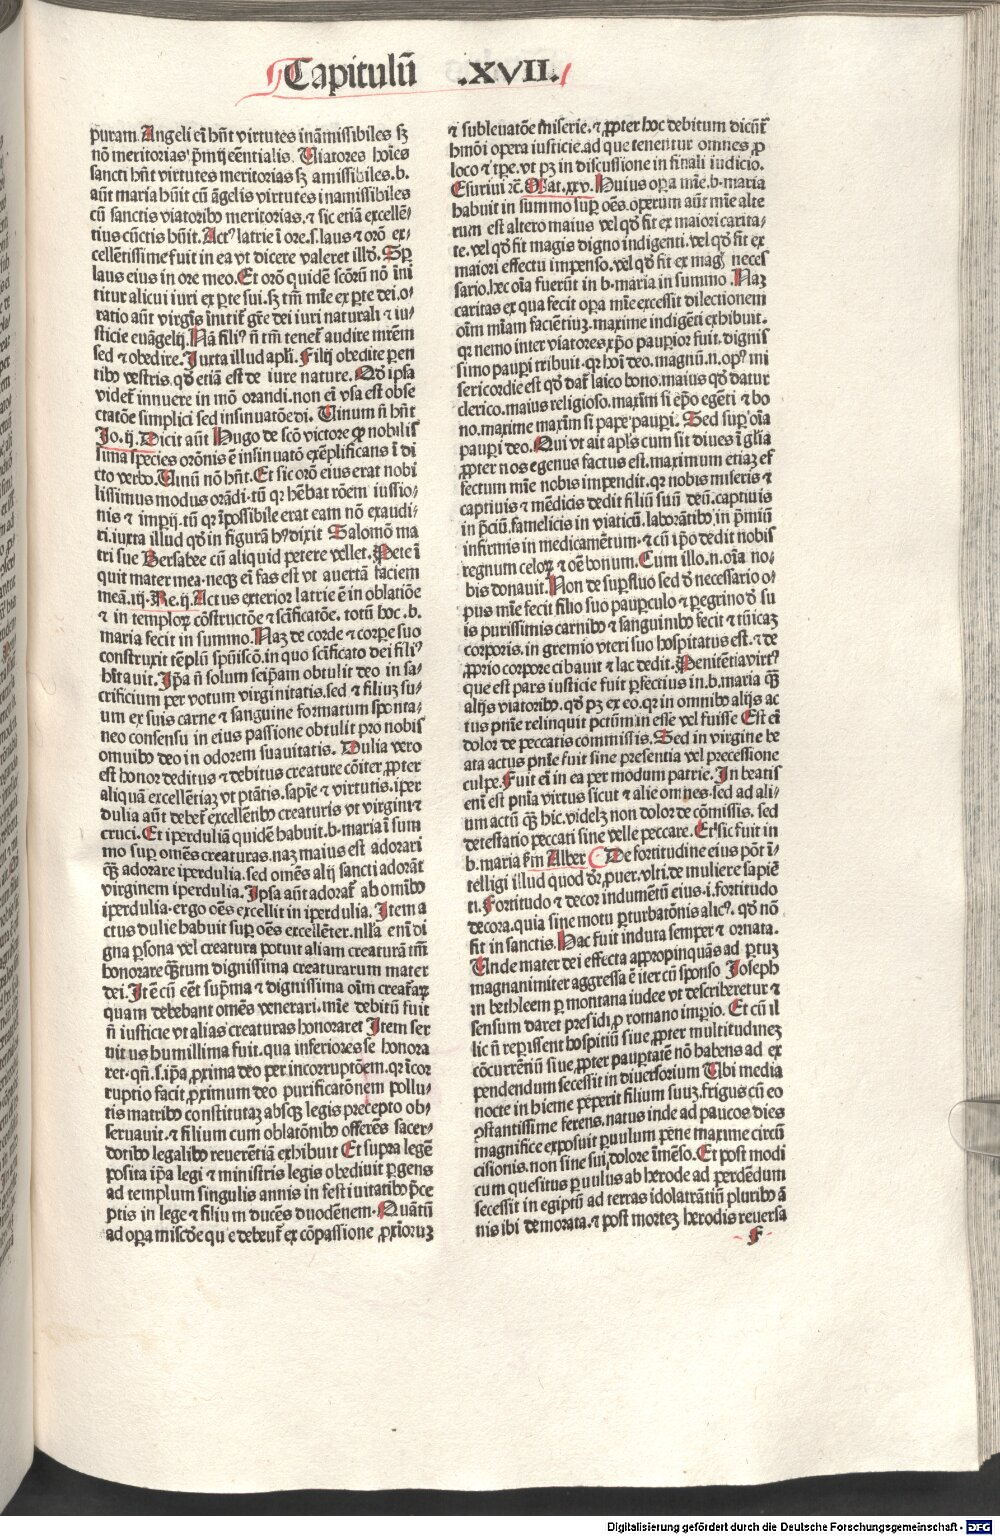 Capitulū .XVII.
puram. Angeli ei hn̄t virtutes ināmissibiles sꝫ
nō meritorias p̄mij eēntialis. Viatores hoīes
sancti hn̄t virtutes meritorias sꝫ amissibiles. b.
aūt maria hūit cū āgelis virtutes inamissibiles
cū sanctis viatoribꝰ meritorias. ⁊ sic etiā excellē-
tius cūctis hūit. Actꝰ latrie ī ore. s. laus ⁊ orō ex-
cellētissime fuit in ea vt dicere valeret illd̓. Sꝑ
laus eius in ore meo. Et orō quidē scōrū nō īni
titur alicui iuri ex ꝑte sui. sꝫ tm̄ mīe ex ꝑte dei. o-
ratio aūt virgīs īnitit̄ gr̄e dei iuri naturali ⁊ iu-
sticie euāgelij. Nā filiꝰ n̄ tm̄ tenet̄ audire mr̄em
sed ⁊ obedire. Juxta illud apl̓i. Filij obedite paren
tibꝰ vestris. qd̓ etiā est de iure nature. Qd̓ ipsa
videt̄ innuere in mō orandi. non ei vsa est obse
ctatōe simplici sed insinuatōe di. Vinum n̄ hn̄t
Jo. ij. Dicit aūt Hugo de scō victore ꝙ nobilis
sima species orōnis ē insinuatō exēplificans ī di
cto verbo. Vinū nō hn̄t. Et sic orō eius erat nobi
lissimus modus orādi. tū qꝛ hēbat rōem iussio-
nis ⁊ imperij. tū qꝛ īpossibile erat eam nō exaudi-
ri. iuxta illud qd̓ in figurā hꝰ dixit Salomō ma
tri sue Bersabee cū aliquid petere vellet. Pete ī
quit mater mea. neqꝫ ei fas est vt auertā faciem
meā. iij. Re. ij. Actus exterior latrie ē in oblatiōe
⁊ in templorꝫ cōstructōe ⁊ scīficatōe. totū hoc. b.
maria fecit in summo. Naꝫ de corde ⁊ corꝑe suo
construxit tēplū spūiscō. in quo scīficato dei filiꝰ
hītauit. Ipa n̄ solum seipam obtulit deo in sa-
crificium per votum virginitatis. sed ⁊ filiuꝫ su-
um ex suis carne ⁊ sanguine formatum sponta-
neo consensu in eius passione obtulit pro nobis
omnibꝰ deo in odorem suauitatis. Dulia vero
est honor deditus ⁊ debitus creature cōiter ꝓpter
aliquā excellētiaꝫ vt ptātis. sapiē ⁊ virtutis. iper
dulia aūt debet̄ excellentibꝰ creaturis vt virgini ⁊
cruci. Et iperduliā quidē habuit. b. maria ī sum
mo suꝑ omēs creaturas. naꝫ maius est adorari
q̄ꝫ adorare iperdulia. sed omēs alij sancti adorāt
virginem iperdulia. Ipsa aūt adorat̄ ab omībꝰ
iperdulia. ergo oēs excellit in iperdulia. Item a
ctus dulie habuit suꝑ oēs excellēter. nll̓a enī di
gna ꝑsona vel creatura potuit aliam creaturā tm̄
honorare q̄ꝫtum dignissima creaturarum mater
dei. Itē cū eēt sup̄ma ⁊ dignissima oīm creat̄arꝫ
quam debebant omēs venerari. mīe debitū fuit
n̄ iusticie vt alias creaturas honoraret Item ser
uitus humillima fuit. qua inferiores se honora
ret. qn̄. s. ipa ꝓxima deo per incorruptōem. qꝛ īcor
ruptio facit ꝓximum deo purificatōnem pollu-
tis matribꝰ constitutaꝫ absqꝫ legis precepto ob-
seruauit. ⁊ filium cum oblatōnibꝰ offerēs sacer-
dotibꝰ legalibꝰ reuerētiā exhibuit Et supra legē
posita ipa legi ⁊ ministris legis obediuit ꝑgens
ad templum singulis annis in festiuitatibꝰ p̄ce
ptis in lege ⁊ filium ducēs duodēnem. Quātū
ad oꝑa miscd̓e que debeut̄ ex cōpassione ꝓxīoruꝫ
⁊ subleuatōe miserie. ⁊ ꝓpter hoc debitum dicūt̄
hmōi opera iusticie. ad que tenentur omnes ꝓ
loco ⁊ tꝑe. vt pꝫ in discussione in finali iudicio.
Esuriui ⁊c̄. Mat. xxv. Huius oꝑa mīe. b. maria
habuit in summo suꝑ oēs. operum aūt mīe alte
rum est altero maius vel qd̓ fit ex maiori carita-
te. vel qd̓ fit magis digno indigenti. vel qd̓ fit ex
maiori effectu impenso. vel qd̓ fit ex mag̓ neces
sario. hec oīa fuerūt in b. maria in summo. Naꝫ
caritas ex qua fecit oꝑa mīe excessit dilectionem
oīm mīam faciētiuꝫ. maxime indigēti exhibuit.
qꝛ nemo inter viatores xp̄o pauꝑior fuit. dignis
simo pauꝑi tribuit. qꝛ hoī deo. magnū. n. opꝰ mi
sericordie est qd̓ dat̄ laico bono. maius qd̓ datur
clerico. maius religioso. maxīm si ep̄o egēti ⁊ bo
no. maxime maxīm si pape pauꝑi. Sed suꝑ oīa
pauꝑi deo. Qui vt ait apl̓s cum sit diues ī gl̓ia
ꝓpter nos egenus factus est. maximum etiaꝫ ef
fectum mīe nobis impendit. qꝛ nobis miseris ⁊
captiuis ⁊ mēdicis dedit filiū suū deū. captiuis
in p̄ciū. famelicis in viaticū. laborātibꝰ in p̄miū
infirmis in medicamētum. ⁊ cū ip̄o dedit nobis
regnum celoꝝ ⁊ oē bonum. Cum illo. n. oīa no-
bis donauit. Non de suꝑfluo sed d̓ necessario o-
pus mīe fecit filio suo pauꝑculo ⁊ ꝑegrino d̓ su
is purissimis carnibꝰ ⁊ sanguinibꝰ fecit ⁊ tūicaꝫ
corporis. in gremio vteri suo hospitatus est. ⁊ de
ꝓprio corpore cibauit ⁊ lac dedit. Penitētia virtꝰ
que est pars iusticie fuit ꝑfectius in. b. maria q̄ꝫ
alijs viatoribꝰ. qd̓ pꝫ ex eo. qꝛ in omnibꝰ alijs ac
tus pn̄ie relinquit pctūm in esse vel fuisse Est ei
dolor de peccatis commissis. Sed in virgine be
ata actus pn̄ie fuit sine presentia vel precessione
culpe. Fuit ei in ea per modum patrie. In beatis
enī est pn̄ia virtus sicut ⁊ alie omnes. sed ad ali-
um actū q̄ꝫ hic. videlꝫ non dolor de cōmissis. sed
detestatio peccati sine velle peccare. Et sic fuit in
b. maria ẜm Alber. De fortitudine eius pōt ī-
telligi illud quod dr̄ ꝓuer. vlti. de muliere sapiē
ti. Fortitudo ⁊ decor indumētū eius. i. fortitudo
decora. quia sine motu ꝑturbatōnis alicꝰ. qd̓ nō
fit in sanctis. Hac fuit induta semper ⁊ ornata.
Unde mater dei effecta appropinquās ad ꝑtuꝫ
magnanimiter aggressa ē iter cū sponso Joseph
in bethleem ꝑ montana iudee vt describeretur ⁊
sensum daret presidi ꝓ romano imꝑio. Et cū il
lic n̄ reꝑissent hospitiū siue ꝓpter multitudineꝫ
cōcurrētiū siue ꝓpter pauꝑtatē nō habens ad ex
pendendum secessit in diuersorium Ubi media
nocte in hieme peperit filium suuꝫ. frigus cū eo
ꝯstantissime ferens. natus inde ad paucos dies
magnifice exposuit ꝑuulum pene maxime circū
cisionis. non sine sui dolore īmēso. Et post modi
cum quesitus ꝑuulus ab herode ad perdēdum
secessit in egiptū ad terras idolatrātiū pluribꝰ ā
nis ibi demorata. ⁊ post morteꝫ herodis reuersa
F
Digitalisierung gefördert durch die Deutsche Forschungsgemeinschaft - DFG